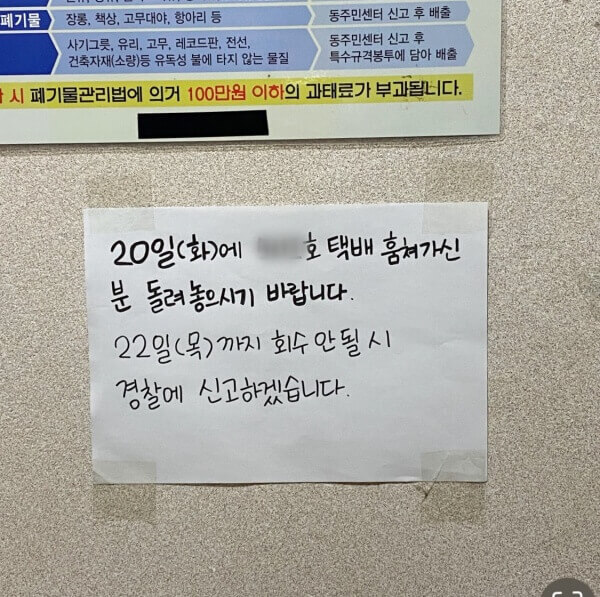 폐기물
장롱, 책상, 고무대야, 항아리 등
동주민센터 신고 후 배출
사기그릇, 유리, 고무, 레코드판, 전선,
건축자재(소량)등 유독성 불에 타지 않는 물질
동주민센터 신고 후
특수규격봉투에 담아 배출
시 폐기물관리법에 의거 100만원 이하의 과태료가 부과됩니다.
20일(화)에 호 택배 훔쳐가신
분 돌려놓으시기 바랍니다.
22일(목)까지 회수 안될 시
경찰에 신고하겠습니다.